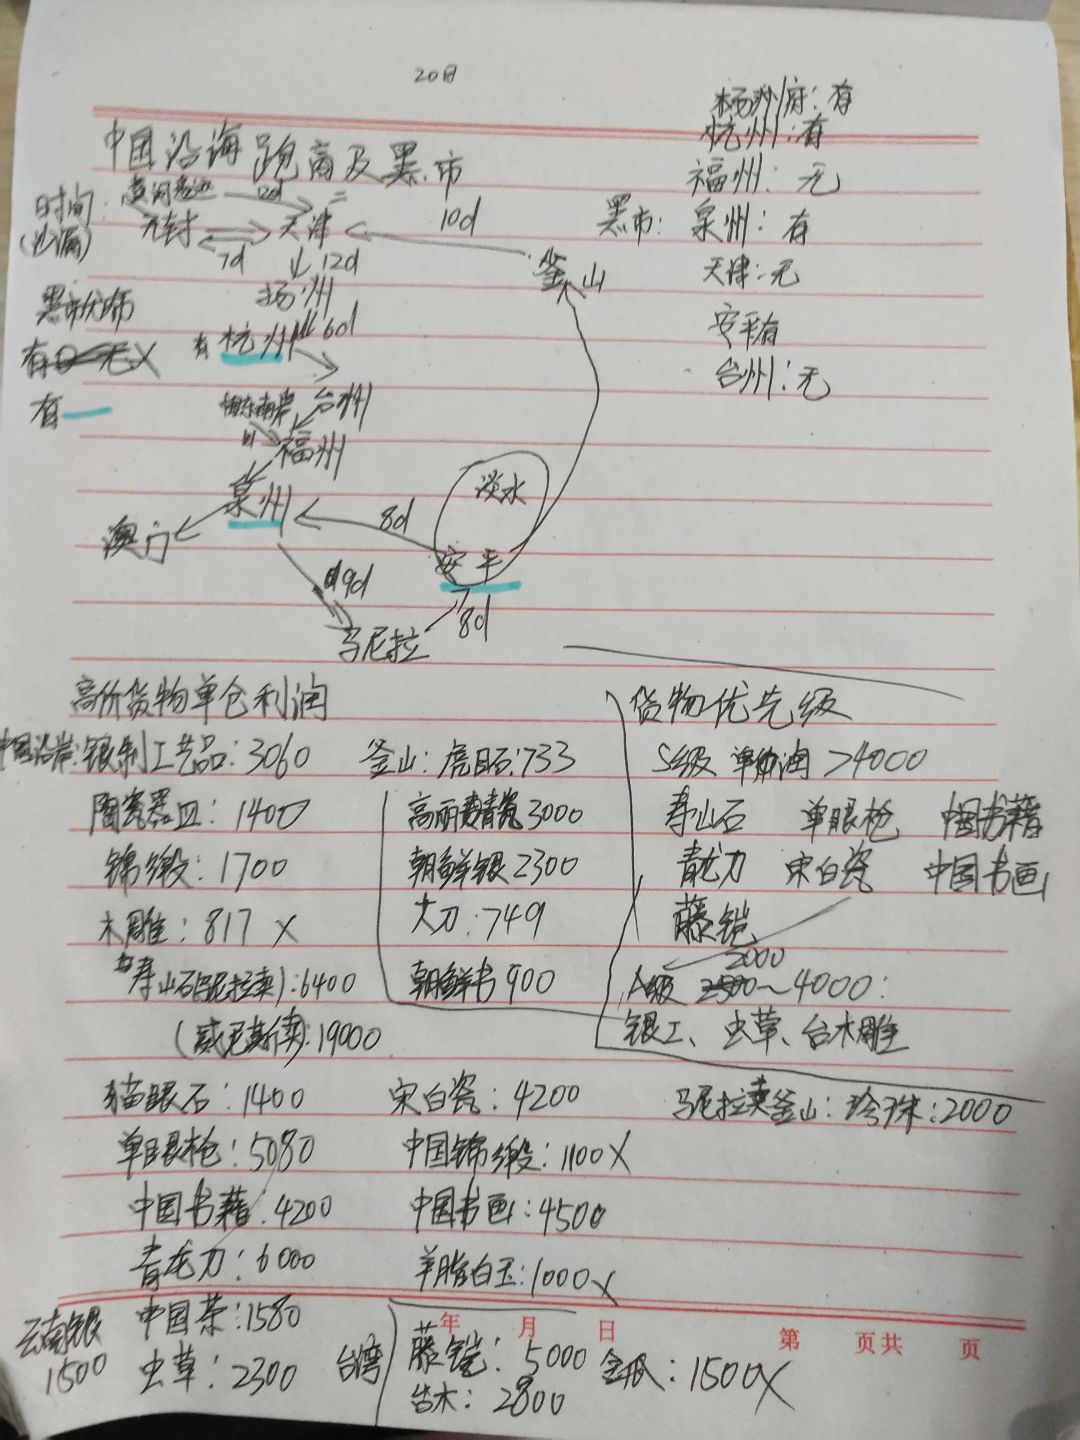 20日
中国沿海跑商及黑市
杨州府：有
杭州：有
福州：无
黑市：泉州：有
天津：无
安平有
台州：无
时间：
12d
天津
7d
10d
釜山
12d
扬州
黑市优师
有 无X
有杭州
6d
有
台州
福州
泉州
澳门
8d
淡水
安平
19d
8d
马尼拉
高价货物单仓利润
中国沿岸：银制工艺品：3060
陶瓷器皿：1400
锦缎：1700
木雕：817 X
寿山石(马尼拉卖)：6400
(威尼斯卖)：19000
猫眼石：1400
单眼枪：5080
中国书籍：4200
青龙刀：6000
中国茶：1580
虫草：2300
云南银
1500
釜山：虎目石：733
高丽青瓷3000
朝鲜银2300
大刀：749
朝鲜书900
宋白瓷：4200
中国锦缎：1100X
中国书画：4500
羊脂白玉：1000X
台湾
藤铠：5000
台木：2800
金瓜：1500X
货物优先级
S级 单 润>4000
寿山石 单眼枪 中国书籍
青龙刀 宋白瓷 中国书画
藤铠
2000
A级 ~4000：
银工、虫草、台木雕
马尼拉卖釜山：珍珠：2000
年 月 日
第 页共 页